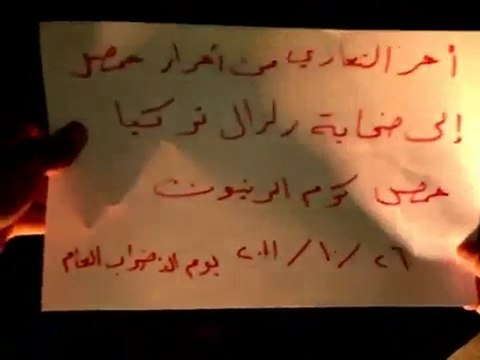 أحر التعازي من أحرار حمص
إلى ضحاية زلزال تركيا
حمص كرم الزيتون
٢٦ / ١٠ / ٢٠١١ يوم الاضراب العام